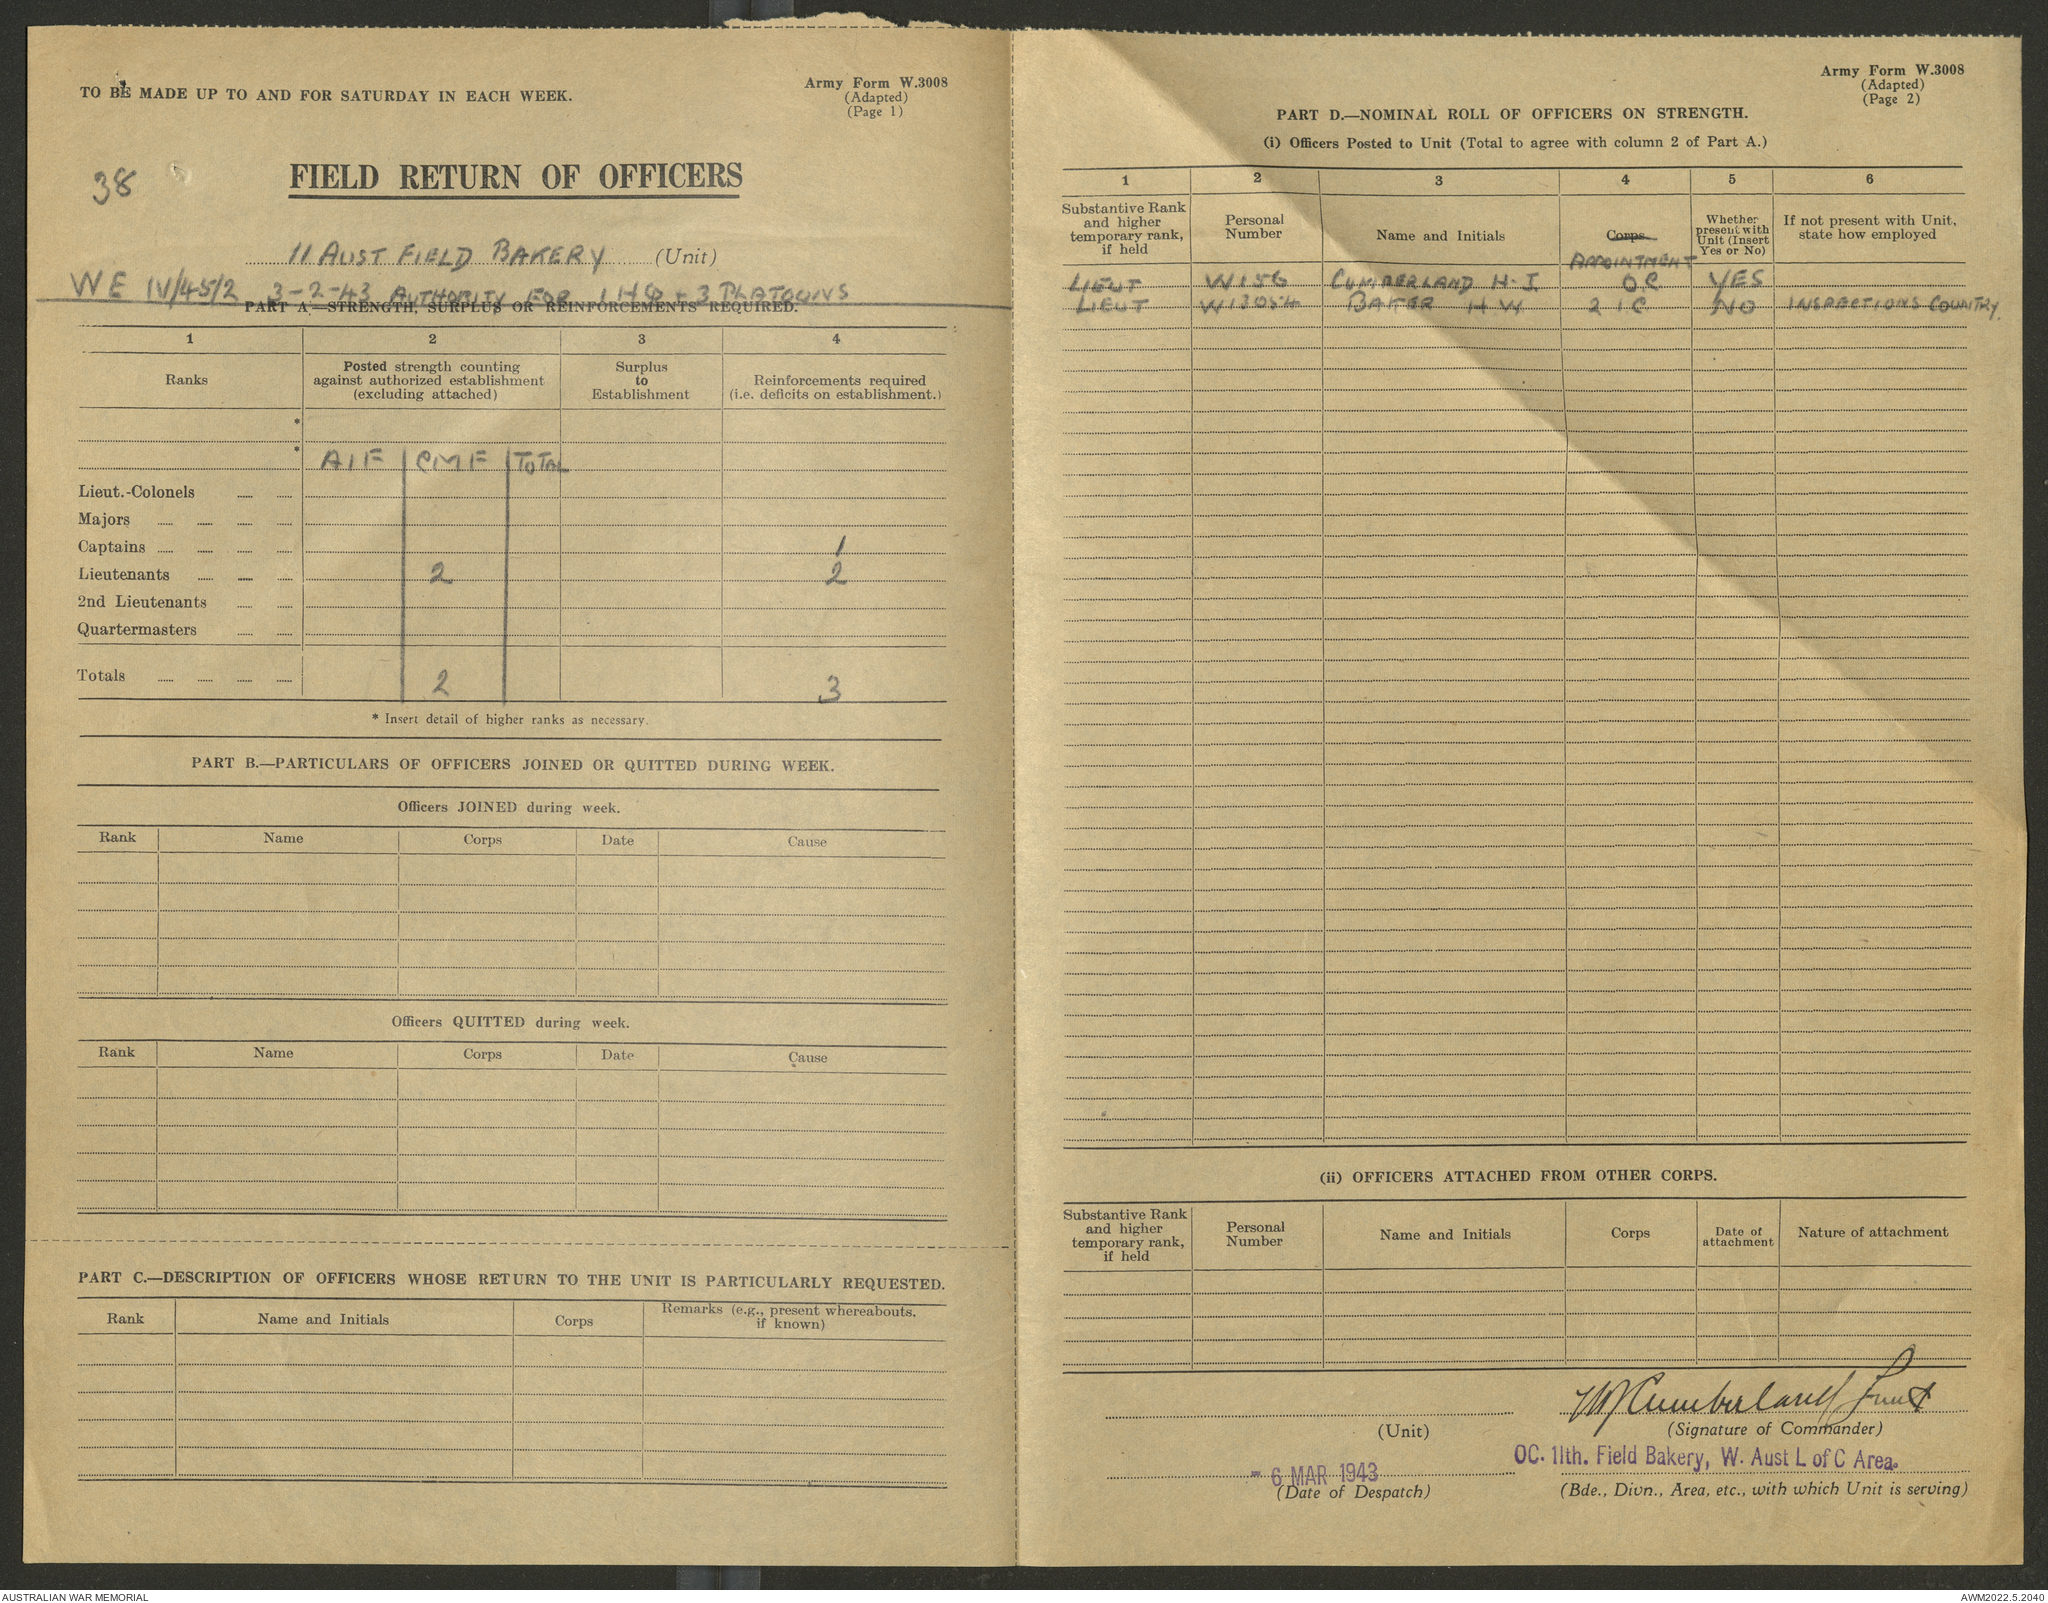 TO BE MADE UP TO AND FOR SATURDAY IN EACH WEEK.
Army Form W.3008
(Adapted)
(Page 1)
38
FIELD RETURN OF OFFICERS
11 AUST FIELD BAKERY (Unit)
WE IV/45/2 3-2-43 AUTHORITY FOR 1 HQ + 3 PLATOONS
PART A.—STRENGTH, SURPLUS OR REINFORCEMENTS REQUIRED.
1 2 3 4
Ranks
Posted strength counting
against authorized establishment
(excluding attached)
Surplus
to
Establishment
Reinforcements required
(i.e. deficits on establishment.)
*
* AIF CMF TOTAL
Lieut.-Colonels
Majors
Captains 1
Lieutenants 2 2
2nd Lieutenants
Quartermasters
Totals 2 3
* Insert detail of higher ranks as necessary.
PART B.—PARTICULARS OF OFFICERS JOINED OR QUITTED DURING WEEK.
Officers JOINED during week.
Rank Name Corps Date Cause
Officers QUITTED during week.
Rank Name Corps Date Cause
PART C.—DESCRIPTION OF OFFICERS WHOSE RETURN TO THE UNIT IS PARTICULARLY REQUESTED.
Rank Name and Initials Corps
Remarks (e.g., present whereabouts,
if known)
Army Form W.3008
(Adapted)
(Page 2)
PART D.—NOMINAL ROLL OF OFFICERS ON STRENGTH.
(i) Officers Posted to Unit (Total to agree with column 2 of Part A.)
1 2 3 4 5 6
Substantive Rank
and higher
temporary rank,
if held
Personal
Number
Name and Initials
Corps
APPOINTMENT
Whether
present with
Unit (Insert
Yes or No)
If not present with Unit,
state how employed
LIEUT W156 CUMBERLAND H.J. OC YES
LIEUT W13054 BAKER H W 2 IC NO INSPECTIONS COUNTRY.
(ii) OFFICERS ATTACHED FROM OTHER CORPS.
Substantive Rank
and higher
temporary rank,
if held
Personal
Number
Name and Initials
Corps
Date of
attachment
Nature of attachment
HJ Cumberland Lieut
(Unit)
(Signature of Commander)
OC. 11th. Field Bakery, W. Aust L of C Area.
- 6 MAR 1943
(Date of Despatch)
(Bde., Divn., Area, etc., with which Unit is serving)
AUSTRALIAN WAR MEMORIAL
AWM2022.5.2040